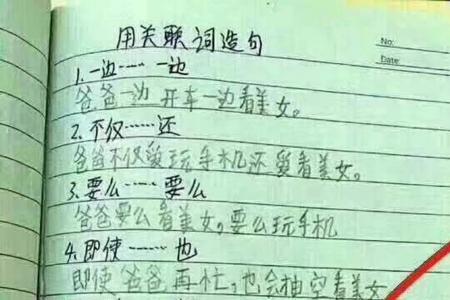 用关联词造句
No:
Date:
1.一边……一边
爸爸一边开车一边看美女。
2.不仅……还
爸爸不仅爱玩手机还爱看美女。
3.要么……要么
爸爸要么看美女,要么玩手机
4.即使……也
即使爸爸再忙,也会抽空看美女